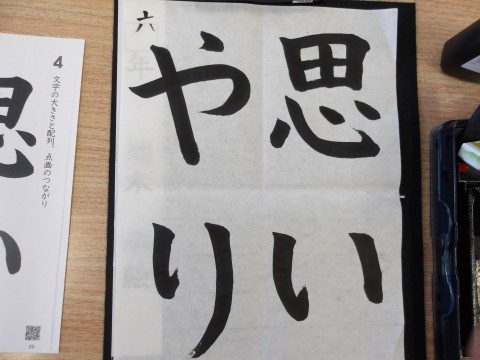 思い
やり
六
4
文字の大きさと配列、点画のつながり
思い